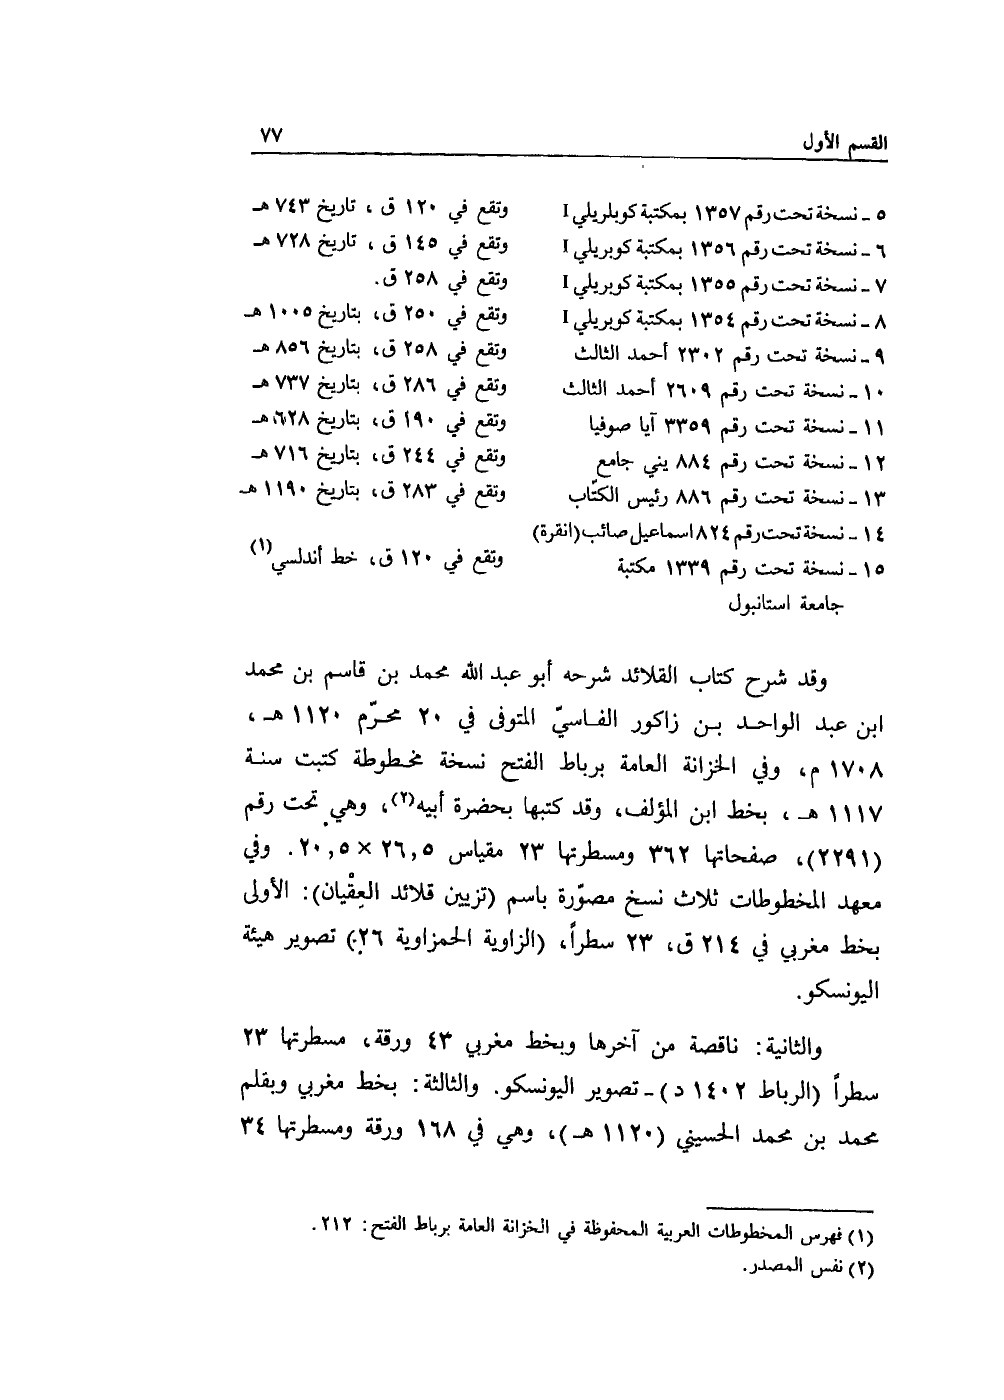 القسم الأول ٧٧
٥ - نسخة تحت رقم ١٣٥٧ بمكتبة كوبلريلي I وتقع في ١٢٠ ق ، تاريخ ٧٤٣ هـ
٦ - نسخة تحت رقم ١٣٥٦ بمكتبة كوبريلي I وتقع في ١٤٥ ق ، تاريخ ٧٢٨ هـ
٧ - نسخة تحت رقم ١٣٥٥ بمكتبة كوبريلي I وتقع في ٢٥٨ ق.
٨ - نسخة تحت رقم ١٣٥٤ بمكتبة كوبريلي I وتقع في ٢٥٠ ق، بتاريخ ١٠٠٥ هـ
٩ - نسخة تحت رقم ٢٣٠٢ أحمد الثالث وتقع في ٢٥٨ ق، بتاريخ ٨٥٦ هـ
١٠ - نسخة تحت رقم ٢٦٠٩ أحمد الثالث وتقع في ٢٨٦ ق، بتاريخ ٧٣٧ هـ
١١ - نسخة تحت رقم ٣٣٥٩ آيا صوفيا وتقع في ١٩٠ ق، بتاريخ ٦٢٨ هـ
١٢ - نسخة تحت رقم ٨٨٤ يني جامع وتقع في ٢٤٤ ق، بتاريخ ٧١٦ هـ
١٣ - نسخة تحت رقم ٨٨٦ رئيس الكتّاب وتقع في ٢٨٣ ق، بتاريخ ١١٩٠ هـ
١٤ - نسخة تحت رقم ٨٢٤ اسماعيل صائب (انقرة)
١٥ - نسخة تحت رقم ١٣٣٩ مكتبة وتقع في ١٢٠ ق، خط أندلسي(١)
جامعة استانبول
وقد شرح كتاب القلائد شرحه أبو عبد الله محمد بن قاسم بن محمد
ابن عبد الواحد بن زاكور الفاسيّ المتوفى في ٢٠ محرّم ١١٢٠ هـ ،
١٧٠٨ م، وفي الخزانة العامة برباط الفتح نسخة مخطوطة كتبت سنة
١١١٧ هـ ، بخط ابن المؤلف، وقد كتبها بحضرة أبيه(٢)، وهي تحت رقم
(٢٢٩١)، صفحاتها ٣٦٢ ومسطرتها ٢٣ مقياس ٢٦,٥ × ٢٠,٥. وفي
معهد المخطوطات ثلاث نسخ مصوّرة باسم (تزيين قلائد العِقْيان): الأولى
بخط مغربي في ٢١٤ ق، ٢٣ سطراً، (الزاوية الحمزاوية ٢٦٠) تصوير هيئة
اليونسكو.
والثانية: ناقصة من آخرها وبخط مغربي ٤٣ ورقة، مسطرتها ٢٣
سطراً (الرباط ١٤٠٢ د) - تصوير اليونسكو. والثالثة: بخط مغربي وبقلم
محمد بن محمد الحسيني (١١٢٠ هـ)، وهي في ١٦٨ ورقة ومسطرتها ٣٤
(١) فهرس المخطوطات العربية المحفوظة في الخزانة العامة برباط الفتح: ٢١٢.
(٢) نفس المصدر.